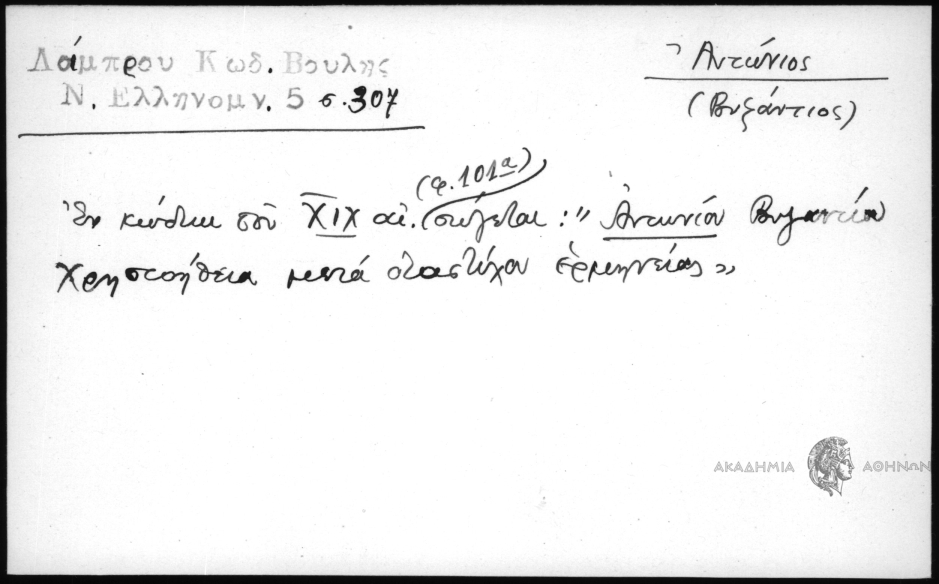 Λάμπρου Κωδ. Βουλης
Ν. Ελληνομν. 5 σ. 307
Ἀντώνιος
(Βυζάντιος)
(φ. 101α)
Ἐν κώδικι τοῦ ΧΙΧ αἰ. σώζεται: "Ἀντωνίου Βυζαντίου
Χρηστοήθεια μετά στίχου ἑρμηνείας"
ΑΚΑΔΗΜΙΑ ΑΘΗΝΩΝ